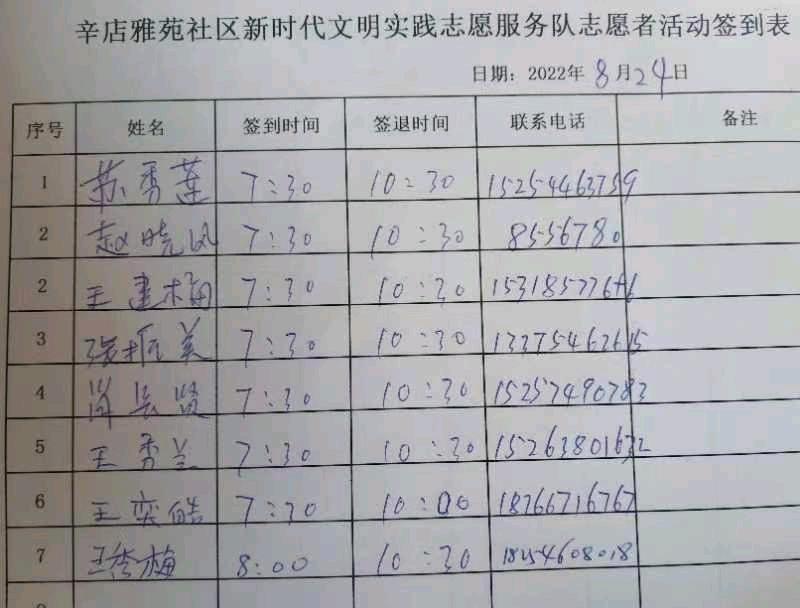 辛店雅苑社区新时代文明实践志愿服务队志愿者活动签到表
日期：2022年 8月24日
序号 姓名 签到时间 签退时间 联系电话 备注
1 苏秀莲 7:30 10:30 15254463759
2 赵晓风 7:30 10:30 8556780
2 王建梅 7:30 10:30
3 张振美 7:30 10:30 13375462615
4 长贤 7:30 10:30 15257490783
5 王秀兰 7:30 10:30 15263801632
6 王奕皓 7:30 10:00 18766716767
7 王秀梅 8:00 10:30 18254608018